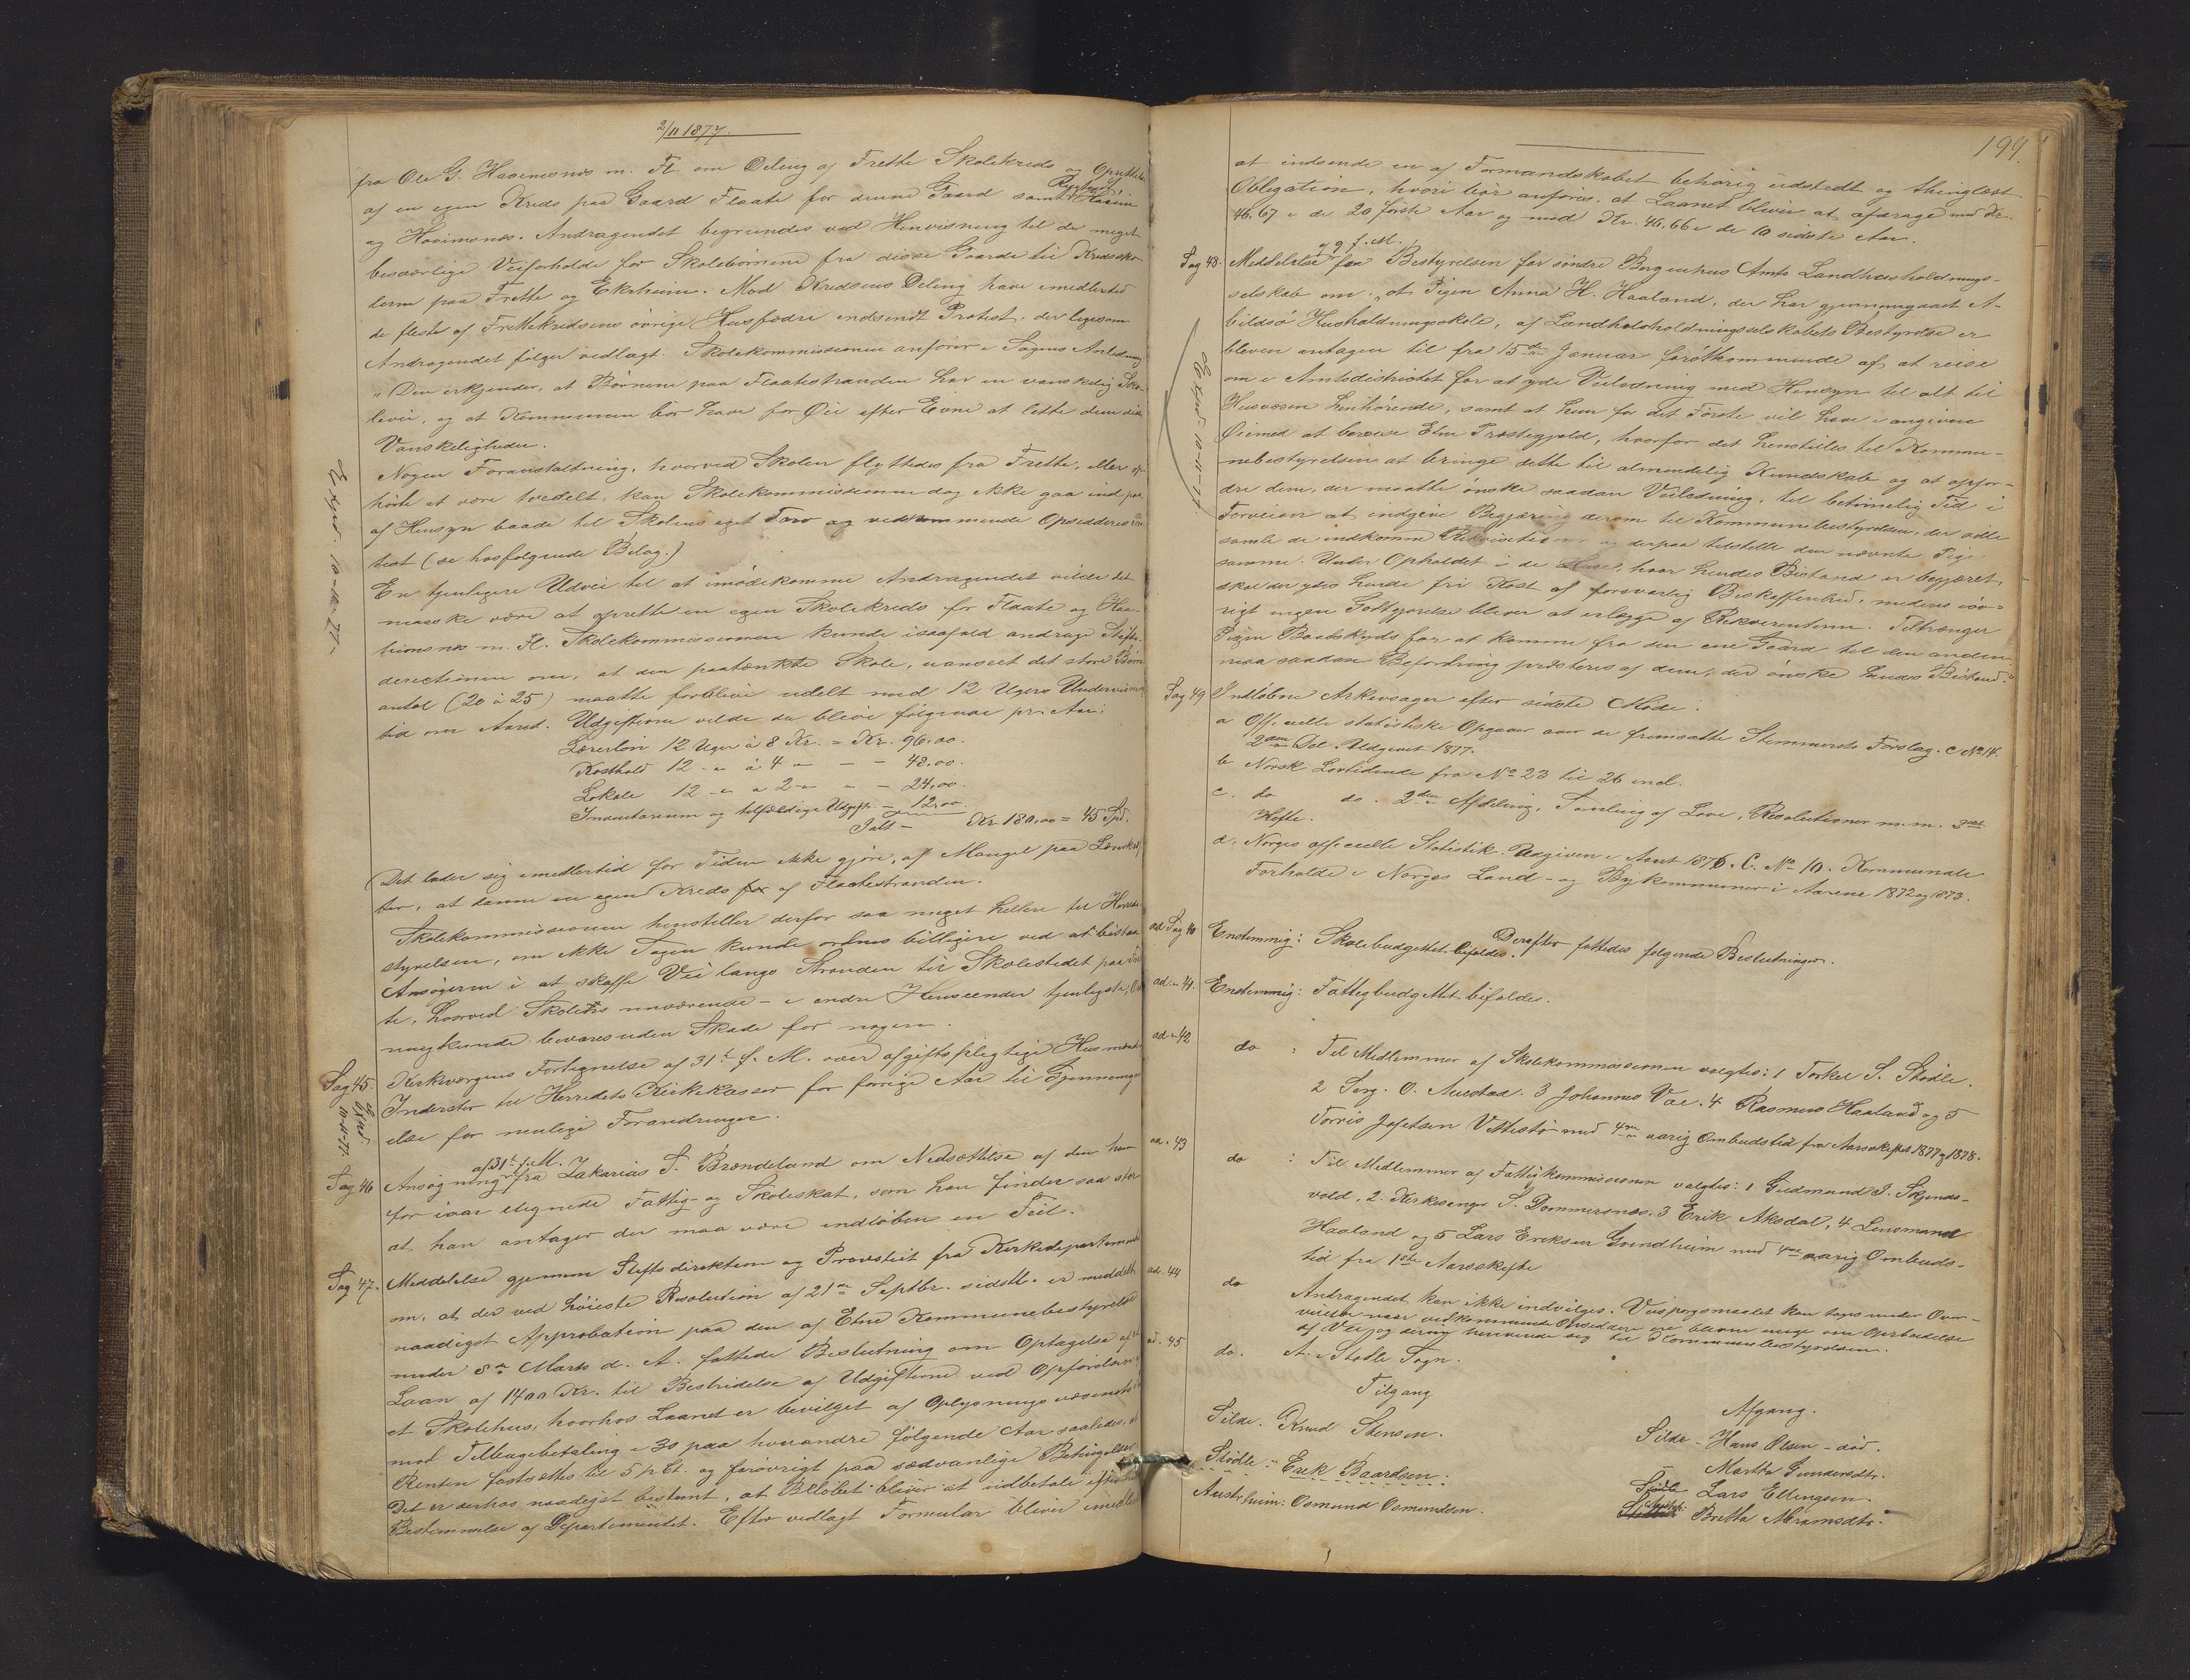 2/11 1877.
fra Ole G. Haaeimsnes m. Fl. om Deling af Frette Skolekreds og Oprettelse
af en egen Kreds paa Gaard Flaate for denne Gaard samt
og Hoeimsnes. Andragendet begrundes ved Henvisning til de meget
besværlige Veiforholde for Skolebørnene fra disse Gaarde til Kredssko-
lerne paa Frette og Ekrheim. Mod Kredsens Deling have imedlertid
de fleste af Frettekredsens øvrige Husfædre indsendt Protest, der ligesom
Andragendet følger vedlagt. Skolekommissionen anfører i Sagens Anledning:
"Den erkjender, at Børnene paa Flaatestranden har en vanskelig Sko-
levei, og at Kommunen bør have for Øie efter Evne at lette dem disse
Vanskeligheder.
Nogen Foranstaltning, hvorved Skolen flyttedes fra Frette, eller op-
hørte at være tvedelt, kan Skolekommissionen dog ikke gaa ind paa
af Hensyn baade til Skolens eget Tarv og vedkommende Opsidderes
test (se hosfølgende Bilag.)
En tjenligere Udvei til at imødekomme Andragendet vilde det
maaske være at oprette en egen Skolekreds for Flaate og
m. Fl. Skolekommissionen kunde isaafald andrage Stifts-
direktionen om, at den paatænkte Skole, uanseet det store Børne-
antal (20 à 25) maatte forblive udelt med 12 Ugers Undervisnings-
tid om Aaret. Udgifterne vilde da blive følgende pr. Aar:
Lærerløn 12 Uger à 8 Kr. = Kr. 96.00.
Kosthold 12 - " - à 4 " - - 48.00.
Lokale 12 - " - a 2 " - - 24,00.
Inventarium og tilfældige Udgifter - 12,00.
Ialt - Kr 180,00 = 45 Spd.
Det lader sig imedlertid for Tiden ikke gjøre, af Mangel paa Lærerkræf-
ter, at danne en egen Kreds for af Flaatestranden.
Skolekommissionen henstiller derfor saa meget hellere til Herreds-
styrelsen, om ikke Sagen kunde ordnes billigere ved at bistaa
Ansøgerne i at skaffe Vei langs Stranden til Skolestedet paa Fret-
te, hvorved Skolens nuværende - i andre Henseender tjenligste, Ord-
ning kunde bevares uden Skade for nogen.
Sag 45. Kirkevergens Fortegnelse af 31te f. M. over afgiftspligtige Husmænd
Inderster til Herredets Kirkekasser for forrige Aar til Gjennemgaa-
else for mulige Forandringer.
Exped. 10-11-77.
Exped. 10-11-77
af 31te f. M.
Sag 46 Ansøgning fra Zakarias S. Brændeland om Nedsættelse af den ham
for iaar ilignede Fattig- og Skoleskat, som han finder saa stor
at han antager der maa være indløben en Feil.
Sag 47. Meddelelse gjennem Stiftsdirektion og Provsteit fra Kirkedepartementet
om, at der ved høieste Resolution af 21de Septbr. sidstl. er meddelt
naadigst Approbation paa den af Etne Kommunebestyrelse
under 8de Marts d. A. fattede Beslutning om Optagelse af et
Laan af 1400 Kr. til Bestridelse af Udgifterne ved Opførelsen af
et Skolehus, hvorhos Laanet er bevilget af Oplysningsvæsenets
mod Tilbagebetaling i 30 paa hverandre følgende Aar saaledes, at
Renten fastsættes til 5 pCt. og forøvrigt paa sædvanlige Betingelser.
Det er derhos naadigst bestemt, at Beløbet bliver at udbetale efter
Bestemmelse af Departementet. Efter vedlagt Formular bliver imedlertid
199.
at indsende en af Formandskabet behørig udstedt og thinglæst
Obligation, hvori bør anføres, at Laanet bliver at afdrage med Kr.
46,67 i de 20 første Aar og med Kr. 46.66 i de 10 sidste Aar.
af 9 f. M.
Sag 48. Meddelelse fra Bestyrelsen for søndre Bergenhus Amts Landhusholdnings-
selskab om: "at Pigen Anna H. Haaland, der har gjennemgaaet A-
bildsø Husholdningsskole, af Landhusholdningsselskabets Bestyrelse er
bleven antagen til fra 15de Januar førstkommende af at reise
om i Amtsdistriktet for at yde Veiledning med Hensyn til alt til
Husvæsen henhørende, samt at hun for det Første vil have i angivne
Øiemed at bereise Etne Præstegjeld, hvorfor det henstilles til Kommu-
nebestyrelsen at bringe dette til almindelig Kundskab og at opfor-
dre dem, der maatte ønske saadan Veiledning, til betimelig Tid i
Forveien at indgive Begjæring derom til Kommunebestyrelsen, der ville
samle de indkomne Rekvisitioner og derpaa tilstille den nævnte Pige
samme. Under Opholdet i de Huse, hvor hendes Bistand er begjæret,
skal der ydes hende fri Kost af forsvarlig Beskaffenhed, medens iøv-
rigt ingen Godtgjørelse bliver at erlægge af Rekvirenterne. Tiltrænger
Pigen Baadskyds for at komme fra den ene Gaard til den anden,
maa saadan Befordring præsteres af dem, der ønske hendes Bistand."
Exped. 10-11-77
Sag 49 Indløbne Arkivsager efter sidste Møde:
a Officielle statistiske Opgaver over de fremsatte Stemmerets Forslag. C No 14.
2den Del. Udgivet 1877.
b Norsk Lovtidende fra No 23 til 26 incl.
c. do do. 2den Afdeling, Samling af Love, Resolutioner m. m. 3die
Hefte.
d, Norges officielle Statistik. Udgiven i Aaret 1876. C. No 10. Kommunale
Forholde i Norges Land- og Bykommuner i Aarene 1872 og 1873.
Derefter fattedes følgende Beslutninger.
ad Sag 40 Enstemmig: Skolebudgettet bifaldes.
ad " 41. Enstemmig: Fattigbudgettet bifaldes.
ad " 42 do : Til Medlemmer af Skolekommissionen valgtes: 1 Torkel S. Stødle.
2 Serg. O. Austad. 3 Johannes Vae. 4. Rasmus Haaland og 5
Torris Josefsen Vettestø med 4re aarig Ombudstid fra Aarsskiftet 1877 og 1878.
ad. 43 do : Til Medlemmer af Fattigkommissionen valgtes: 1 Gudmund J.
vold, 2. Kirkesanger S. Dommersnæs. 3 Erik Aksdal, 4 Lensmand
Haaland og 5 Lars Eriksen Grindheim med 4re aarig Ombuds-
tid fra 1ste Aarsskifte
ad. 44 do Andragendet kan ikke indvilges. Veispørgsmaalet kan tages under Over-
veielse naar vedkommende Opsiddere ere blevne enige om Oparbeidelse
af Vei, og derom henvende sig til Kommunebestyrelsen.
ad. 45 do. A. i Stødle Sogn.
Tilgang
Afgang.
Silde. Knud Stensen.
Silde - Hans Olsen - død.
Martha Gundersdtr.
Stødle: Erik Baardsen.
Stødle Lars Ellingsen.
Austrheim: Osmund Osmundsen.
Britha